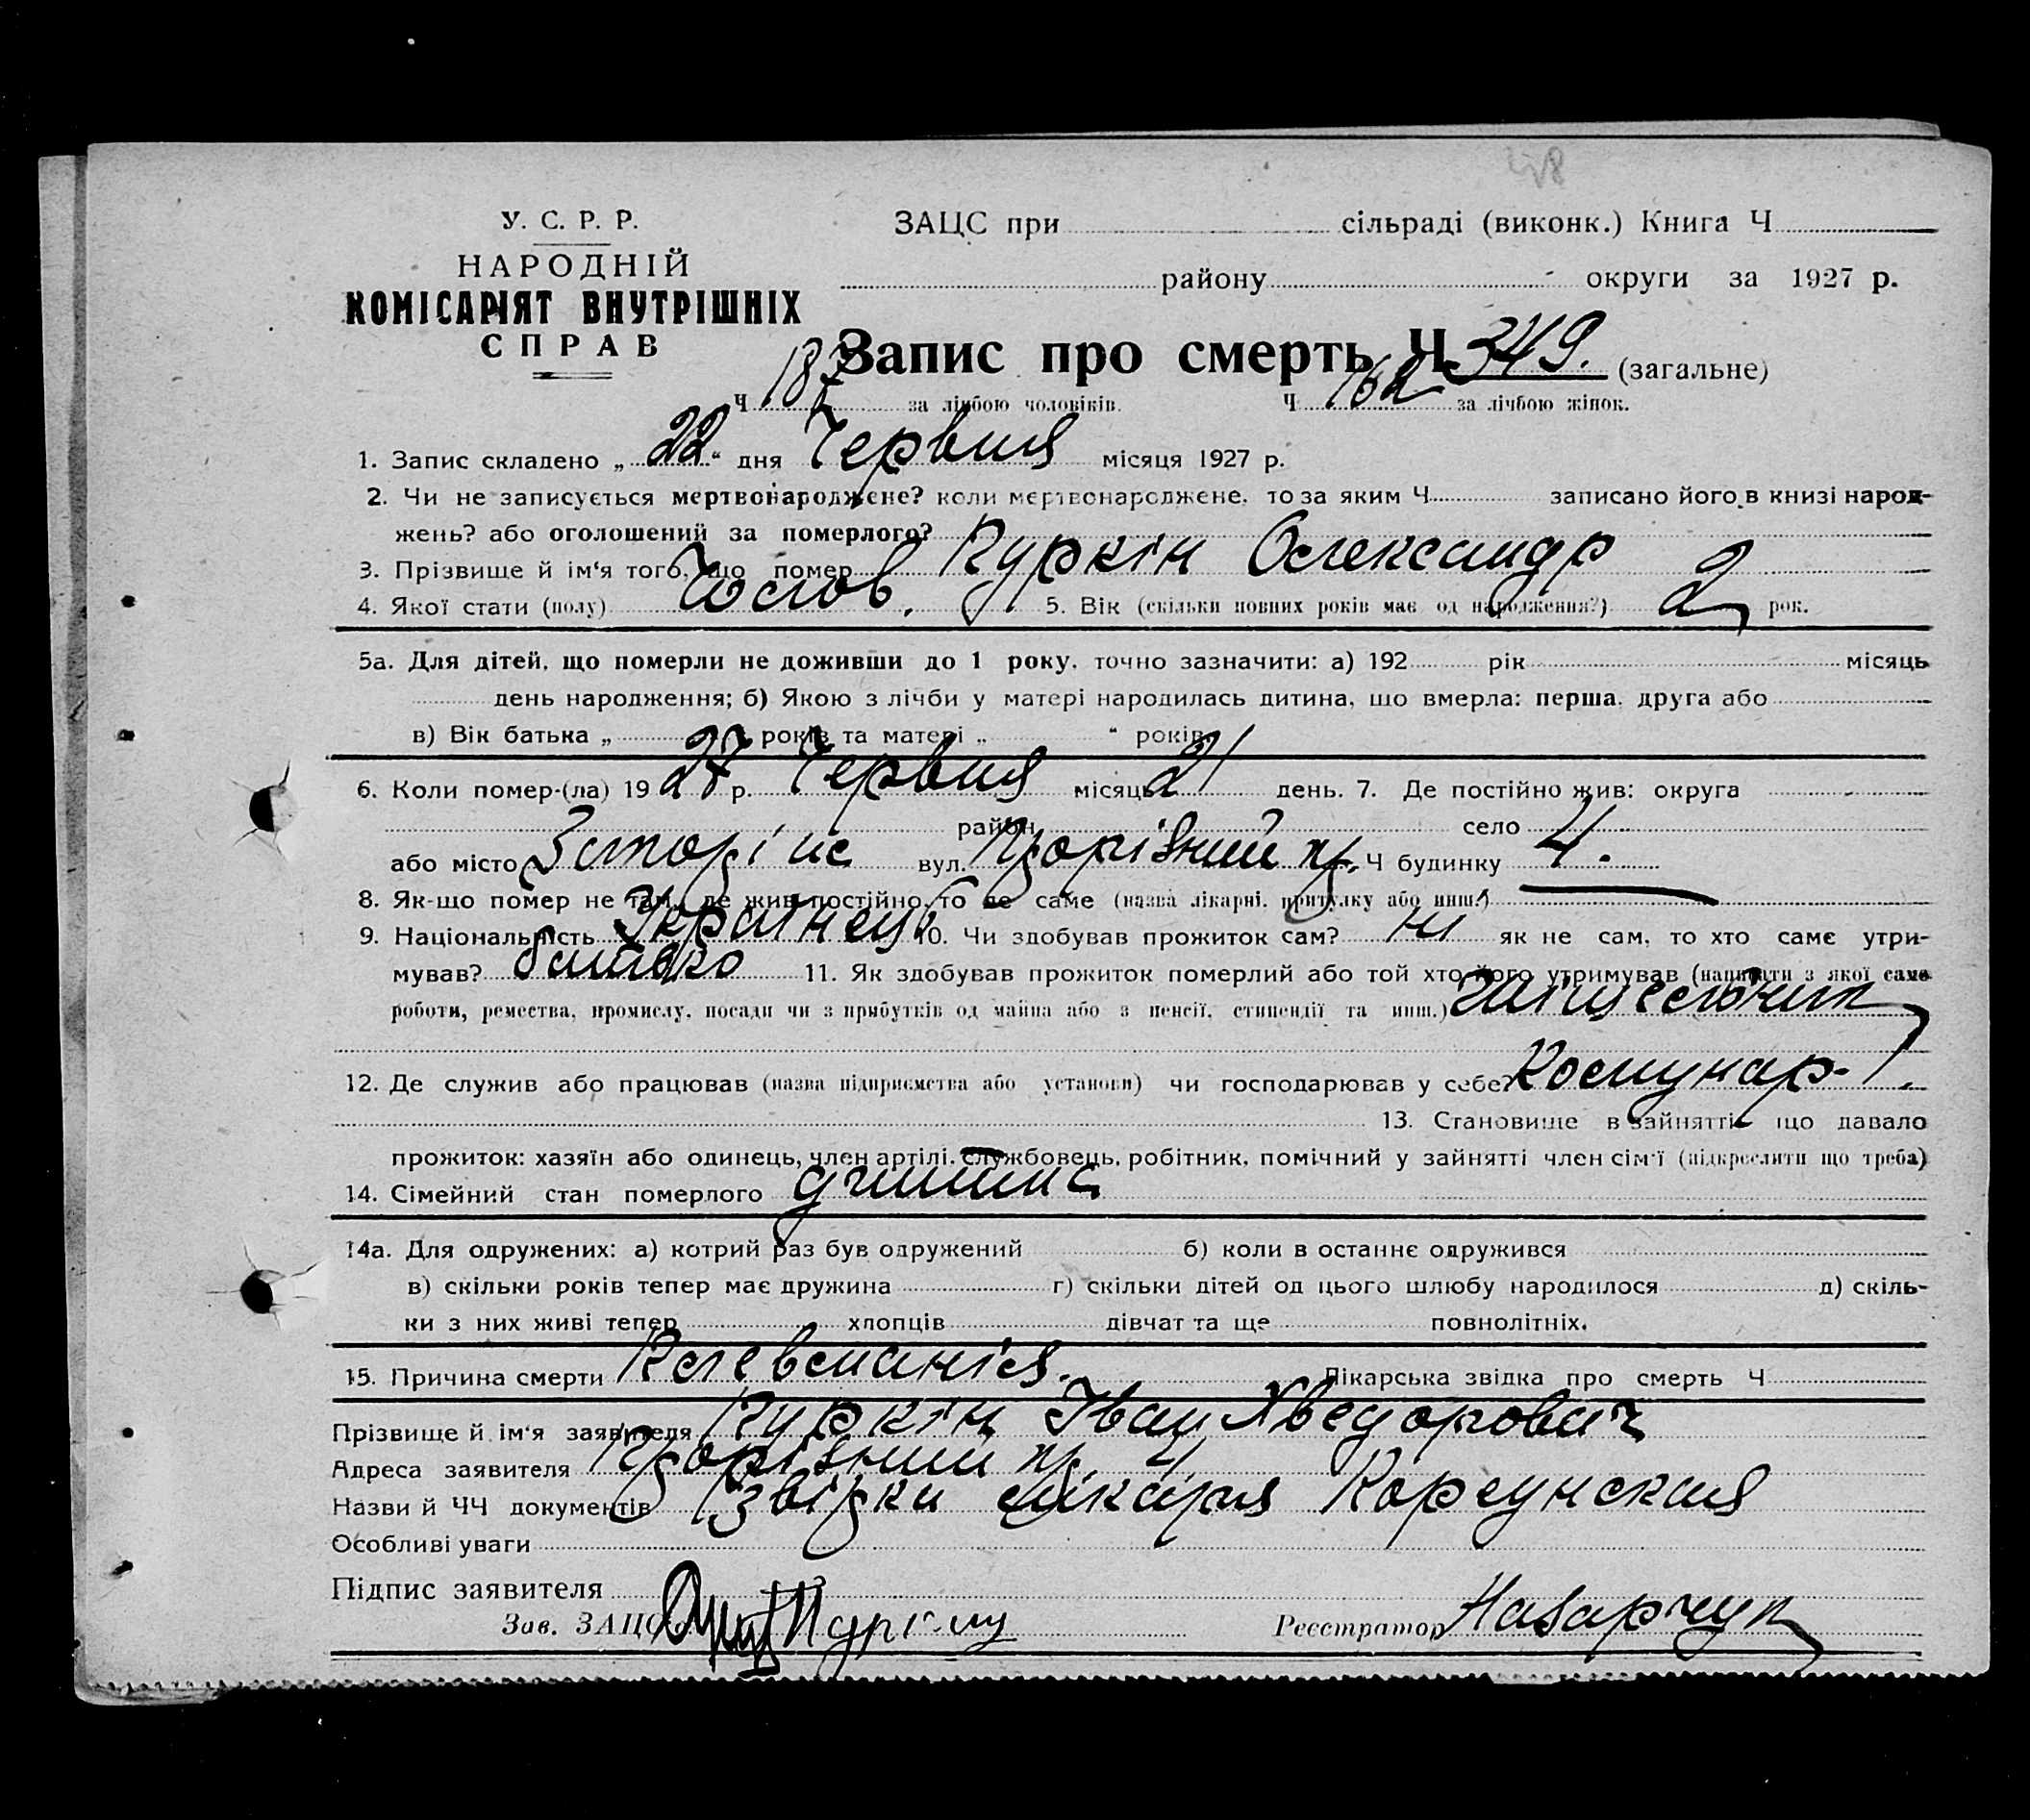 48
У. С. Р. Р.
НАРОДНІЙ
КОМІСАРІЯТ ВНУТРІШНІХ
СПРАВ
ЗАЦС при сільраді (виконк.) Книга Ч
району округи за 1927 р.
Запис про смерть Ч 349. (загальне)
Ч 187 за лічбою чоловіків. Ч 162 за лічбою жінок.
1. Запис складено „ 22 “ дня Червня місяця 1927 р.
2. Чи не записується мертвонароджене? коли мертвонароджене, то за яким Ч записано його в книзі народ-
жень? або оголошений за померлого?
3. Прізвище й ім'я того, що помер Куркін Олександр
4. Якої стати (полу) Чолов. 5. Вік (скільки повних років має од народження?) 2 рок.
5а. Для дітей, що померли не доживши до 1 року, точно зазначити: а) 192 рік місяць
день народження; б) Якою з лічби у матері народилась дитина, що вмерла: перша, друга або
в) Вік батька „ років та матері „ “ років.
6. Коли помер-(ла) 1927 р. Червня місяць 21 день. 7. Де постійно жив: округа
район село
або місто Запоріжє вул. Ч будинку 4.
8. Як-що помер не там, де жив постійно, то де саме (назва лікарні, притулку або инш.)
9. Національність Українець 10. Чи здобував прожиток сам? ні як не сам, то хто саме утри-
мував? батько 11. Як здобував прожиток померлий або той хто його утримував (написати з якої саме
роботи, ремества, промислу, посади чи з прибутків од майна або з пенсії, стипендії та инш.)
12. Де служив або працював (назва підприємства або установи) чи господарював у себе? Комунар-1.
13. Становище в зайнятті що давало
прожиток: хазяїн або одинець, член артілі, службовець, робітник, помічний у зайнятті член сім'ї (підкреслити що треба)
14. Сімейний стан померлого дитина
14а. Для одружених: а) котрий раз був одружений б) коли в останнє одружився
в) скільки років тепер має дружина г) скільки дітей од цього шлюбу народилося д) скіль-
ки з них живі тепер хлопців дівчат та ще повнолітніх.
15. Причина смерти Лікарська звідка про смерть Ч
Прізвище й ім'я заявителя Куркін Іван Хведорович
Адреса заявителя 4
Назви й ЧЧ документів звідки лікаря Корсунская
Особливі уваги
Підпис заявителя
Зав. ЗАЦС'ом Реєстратор Назарчук